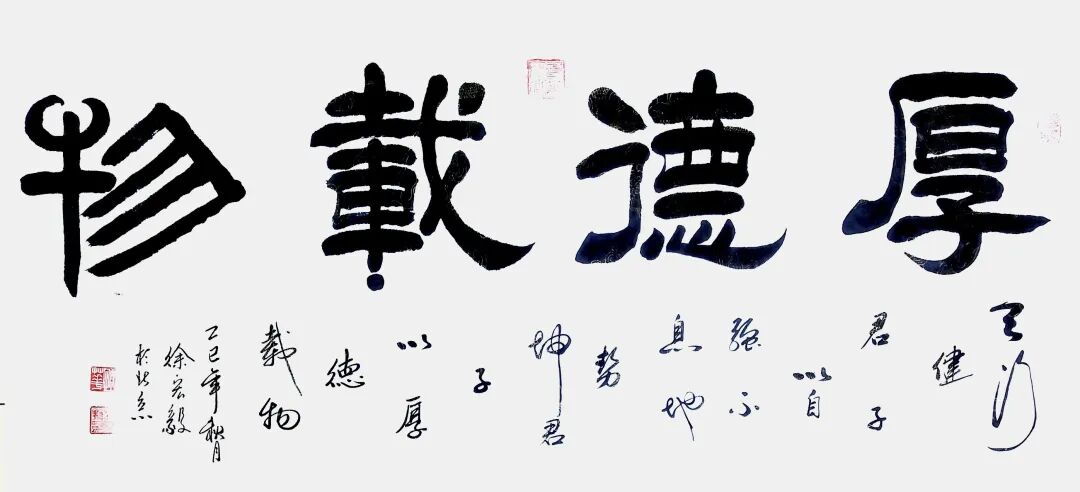 厚德載物
天行
健
君子
以自
强不
息地
势
坤君
子
以厚
德
载物
乙巳年秋月
徐宏毅
於北京